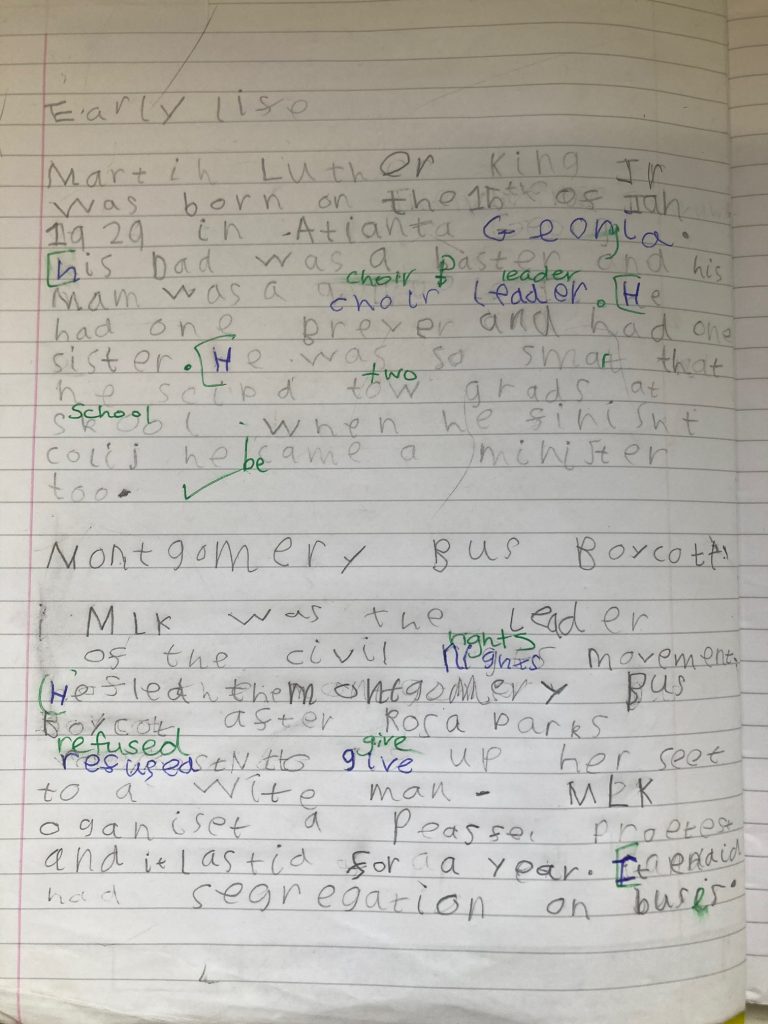 Early lise
Martin Luther King Jr
was born on the 15th of Jan
1929 in Atlanta Georgia.
his Dad was a paster and his
choir leader
mam was a choir leader. He
had one brever and had one
sister. He was so smart that
two
he scipd tow grads at
School
skool. when he finisht
colij he became a minister
too.
Montgomery Bus Boycott
MLK was the Leader
rights
of the civil rights movement
He led the montgomery Bus
Boycot after Rosa parks
refused give
refused to give up her seet
to a wite man - MLK
oganiset a proetest
and it lastid for a year. It
had segregation on buses.